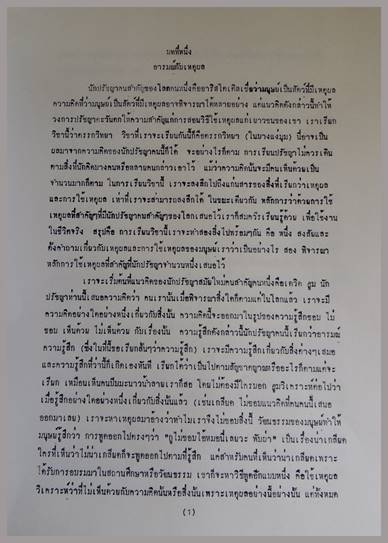 บทที่หนึ่ง
อารมณ์กับเหตุผล
นักปรัชญาคนสำคัญของโลกคนหนึ่งคืออาริสโตเติลเชื่อว่ามนุษย์เป็นสัตว์ที่มีเหตุผล
ความคิดที่ว่ามนุษย์เป็นสัตว์ที่มีเหตุผลอาจพิจารณาได้หลายอย่าง แต่แนวคิดดังกล่าวนี้ทำให้
วงการปรัชญาตะวันตกให้ความสำคัญแก่การสอนวิธีใช้เหตุผลแก่เยาวชนของเขา เราเรียก
วิชานี้ว่าตรรกวิทยา วิชาที่เราจะเรียนกันนี้ก็คือตรรกวิทยา (ในบางแง่มุม) นี่อาจเป็น
ผลมาจากความคิดของนักปรัชญาคนนี้ก็ได้ จะอย่างไรก็ตาม การเรียนปรัชญาไม่ควรเดิน
ตามสิ่งที่นักคิดบางคนหรือหลายคนกล่าวเอาไว้ แม้ว่าความคิดนั้นจะมีคนเห็นด้วยเป็น
จำนวนมากก็ตาม ในการเรียนวิชานี้ เราจะลงลึกไปถึงแก่นสารของสิ่งที่เรียกว่าเหตุผล
และการใช้เหตุผล เท่าที่เราจะสามารถลงลึกได้ ในขณะเดียวกัน หลักการว่าด้วยการใช้
เหตุผลที่สำคัญๆที่มีนักปรัชญาคนสำคัญของโลกเสนอไว้ เราก็สมควรเรียนรู้ด้วย เพื่อใช้งาน
ในชีวิตจริง สรุปคือ การเรียนวิชานี้เราจะทำสองสิ่งไปพร้อมๆกัน คือ หนึ่ง สงสัยและ
ตั้งคำถามเกี่ยวกับเหตุผลและการใช้เหตุผลของมนุษย์เราว่าเป็นอย่างไร สอง พิจารณา
หลักการใช้เหตุผลที่สำคัญที่มีนักปรัชญาจำนวนหนึ่งเสนอไว้
เราจะเริ่มต้นที่แนวคิดของนักปรัชญาสมัยใหม่คนสำคัญคนหนึ่งคือเดวิด ฮูม นัก
ปรัชญาท่านนี้เสนอความคิดว่า คนเรานั้นเมื่อพิจารณาสิ่งใดก็ตามแต่ในโลกแล้ว เราจะมี
ความคิดอย่างใดอย่างหนึ่งเกี่ยวกับสิ่งนั้น ความคิดนี้จะออกมาในรูปของความรู้สึกชอบ ไม่
ชอบ เห็นด้วย ไม่เห็นด้วย กับเรื่องนั้น ความรู้สึกดังกล่าวนี้นักปรัชญาคนนี้เรียกว่าอารมณ์
ความรู้สึก (ซึ่งในที่นี้ขอเรียกสั้นๆว่าความรู้สึก) เราจะมีความรู้สึกเกี่ยวกับสิ่งต่างๆเสมอ
และความรู้สึกที่ว่านี้ก็เกิดเองทันที เรียกได้ว่าเป็นไปตามสัญชาตญาณหรืออะไรก็ตามแต่จะ
เรียก เหมือนเห็นคนบีบมะนาวน้ำลายเราก็สอ โดยไม่ต้องมีใครบอก ฮูมวิเคราะห์ต่อไปว่า
เมื่อรู้สึกอย่างใดอย่างหนึ่งเกี่ยวกับสิ่งนั้นแล้ว (เช่นเกลียด ไม่ชอบแนวคิดที่คนคนนี้เสนอ
ออกมาเลย) เราจะหาเหตุผลมาอ้างว่าทำไมเราจึงไม่ชอบสิ่งนี้ วัฒนธรรมของมนุษย์ทำให้
มนุษย์รู้สึกว่า การพูดออกไปตรงๆว่า "กูไม่ชอบไอ้หมอนี่เลยวะ พับผ่า" เป็นเรื่องน่าเกลียด
ใครที่เห็นว่าไม่น่าเกลียดก็จะพูดออกไปตามที่รู้สึก แต่สำหรับคนที่เห็นว่าน่าเกลียดเพราะ
ได้รับการอบรมมาในสถานศึกษาหรือวัฒนธรรม เขาก็จะหาวิธีพูดอีกแบบหนึ่ง คือใช้เหตุผล
วิเคราะห์ว่าที่ไม่เห็นด้วยกับความคิดนั้นหรือสิ่งนั้นเพราะเหตุผลอย่างนี้อย่างนั้น แต่ทั้งหมด
(1)